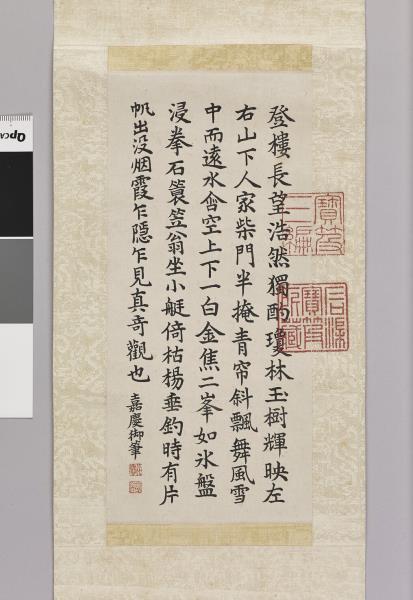 登樓長望浩然獨酌瓊林玉樹輝映左
右山下人家柴門半掩青帘斜飄舞風雪
中而遠水會空上下一白金焦二峯如氷盤
浸拳石簑笠翁坐小艇倚枯楊垂釣時有片
帆出没烟霞乍隠乍見真竒觀也
嘉慶御筆
寶笈
三編
石渠
寶笈
所藏